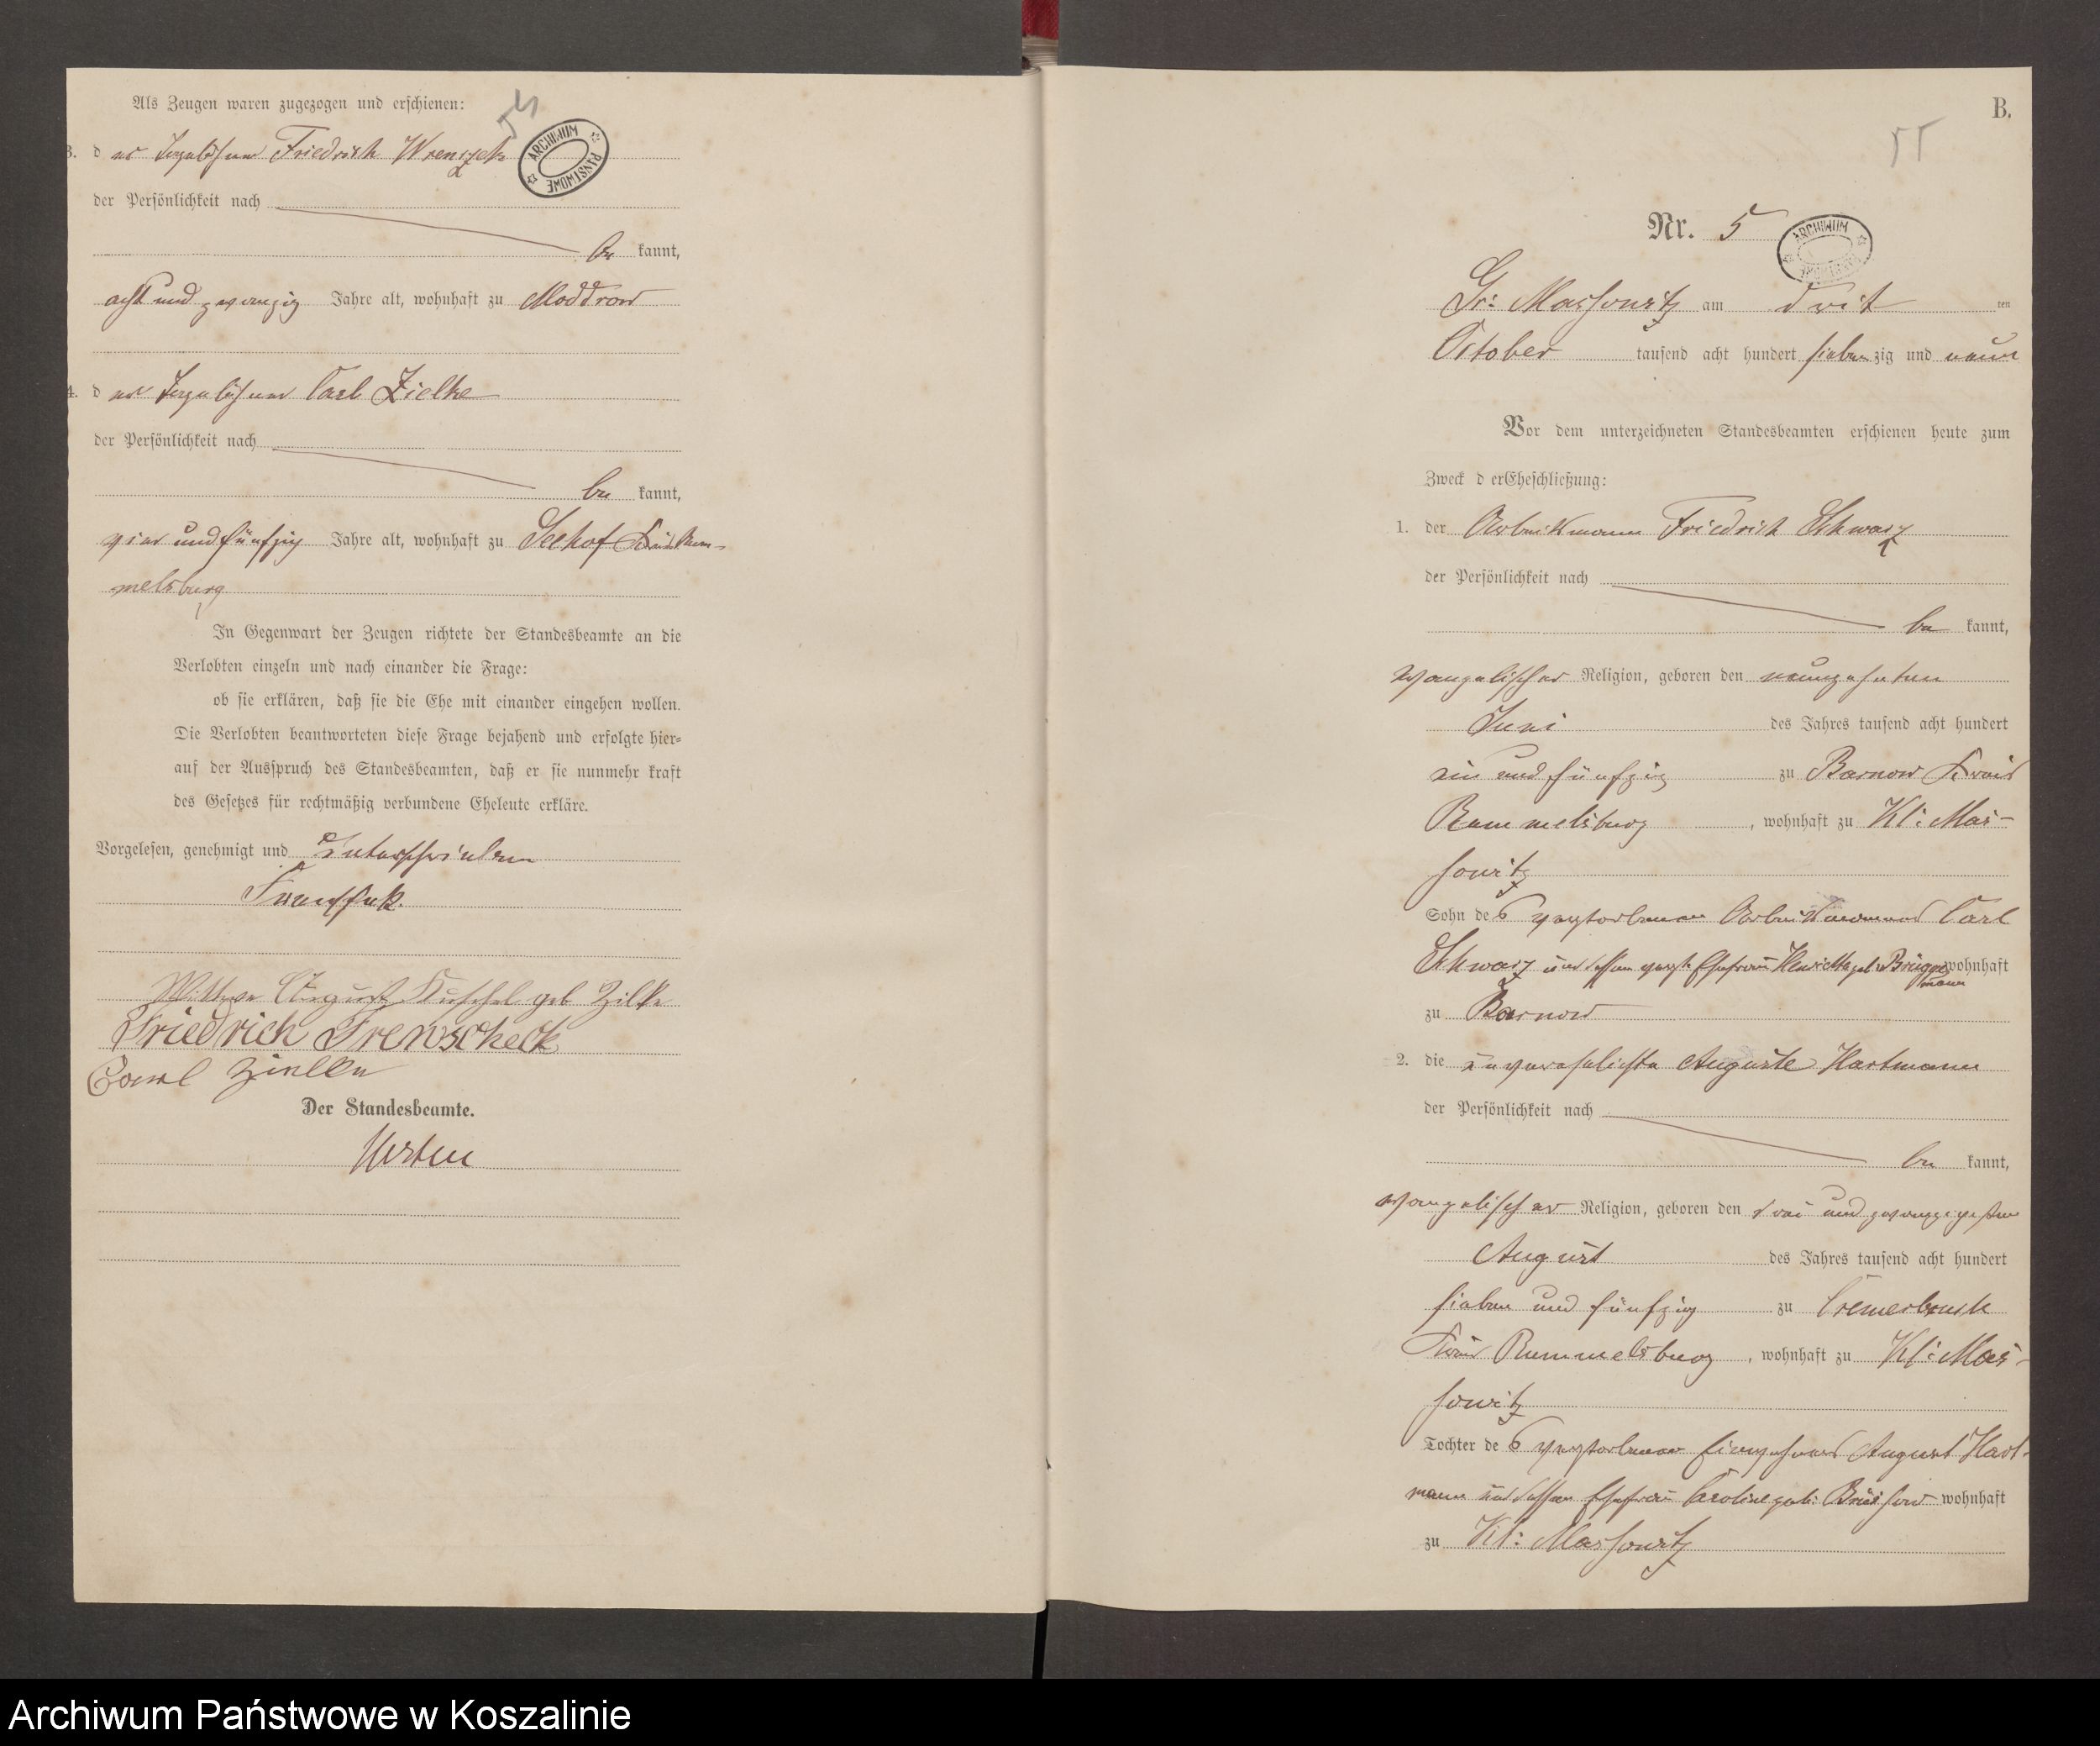 54
Als Zeugen waren zugezogen und erschienen:
3. der Tagelöhner Friedrich Wrenzek
ARCHIWUM PAŃSTWOWE
der Persönlichkeit nach
be kannt,
acht und zwanzig Jahre alt, wohnhaft zu Moddrow
4. der Tagelöhner Carl Zielke
der Persönlichkeit nach
be kannt,
vier und fünfzig Jahre alt, wohnhaft zu Seehof Kreis Rum-
melsburg
In Gegenwart der Zeugen richtete der Standesbeamte an die
Verlobten einzeln und nach einander die Frage:
ob sie erklären, daß sie die Ehe mit einander eingehen wollen.
Die Verlobten beantworteten diese Frage bejahend und erfolgte hier-
auf der Ausspruch des Standesbeamten, daß er sie nunmehr kraft
des Gesetzes für rechtmäßig verbundene Eheleute erkläre.
Vorgelesen, genehmigt und unterschrieben
Wittwe August Kuschel geb Zilke
Friedrich Frenscheck
Carl Zielke
Der Standesbeamte.
B.
55
Nr. 5
ARCHIWUM PAŃSTWOWE
Gr: Massowitz am dritten
October tausend acht hundert siebenzig und neun
Vor dem unterzeichneten Standesbeamten erschienen heute zum
Zweck d er Eheschließung:
1. der Arbeitsmann Friedrich Schwarz
der Persönlichkeit nach
be kannt,
evangelischer Religion, geboren den neunzehnten
Juni des Jahres tausend acht hundert
ein und fünfzig zu Barnow Kreis
Rummelsburg, wohnhaft zu Kl: Mas-
sowitz
Sohn des verstorbenen Arbeitsmannes Carl
Schwarz und dessen verst. Ehefrau Henriette geb. Brügge- wohnhaft
mann
zu Barnow
2. die unverehelichte Auguste Hartmann
der Persönlichkeit nach
be kannt,
evangelischer Religion, geboren den drei und zwanzigsten
August des Jahres tausend acht hundert
sieben und fünfzig zu Cremerbruch
Kreis Rummelsburg, wohnhaft zu Kl: Mas-
sowitz
Tochter des verstorbenen Einwohners August Hart-
mann und dessen Ehefrau Caroline geb: Brüssow wohnhaft
zu Kl: Massowitz
Archiwum Państwowe w Koszalinie